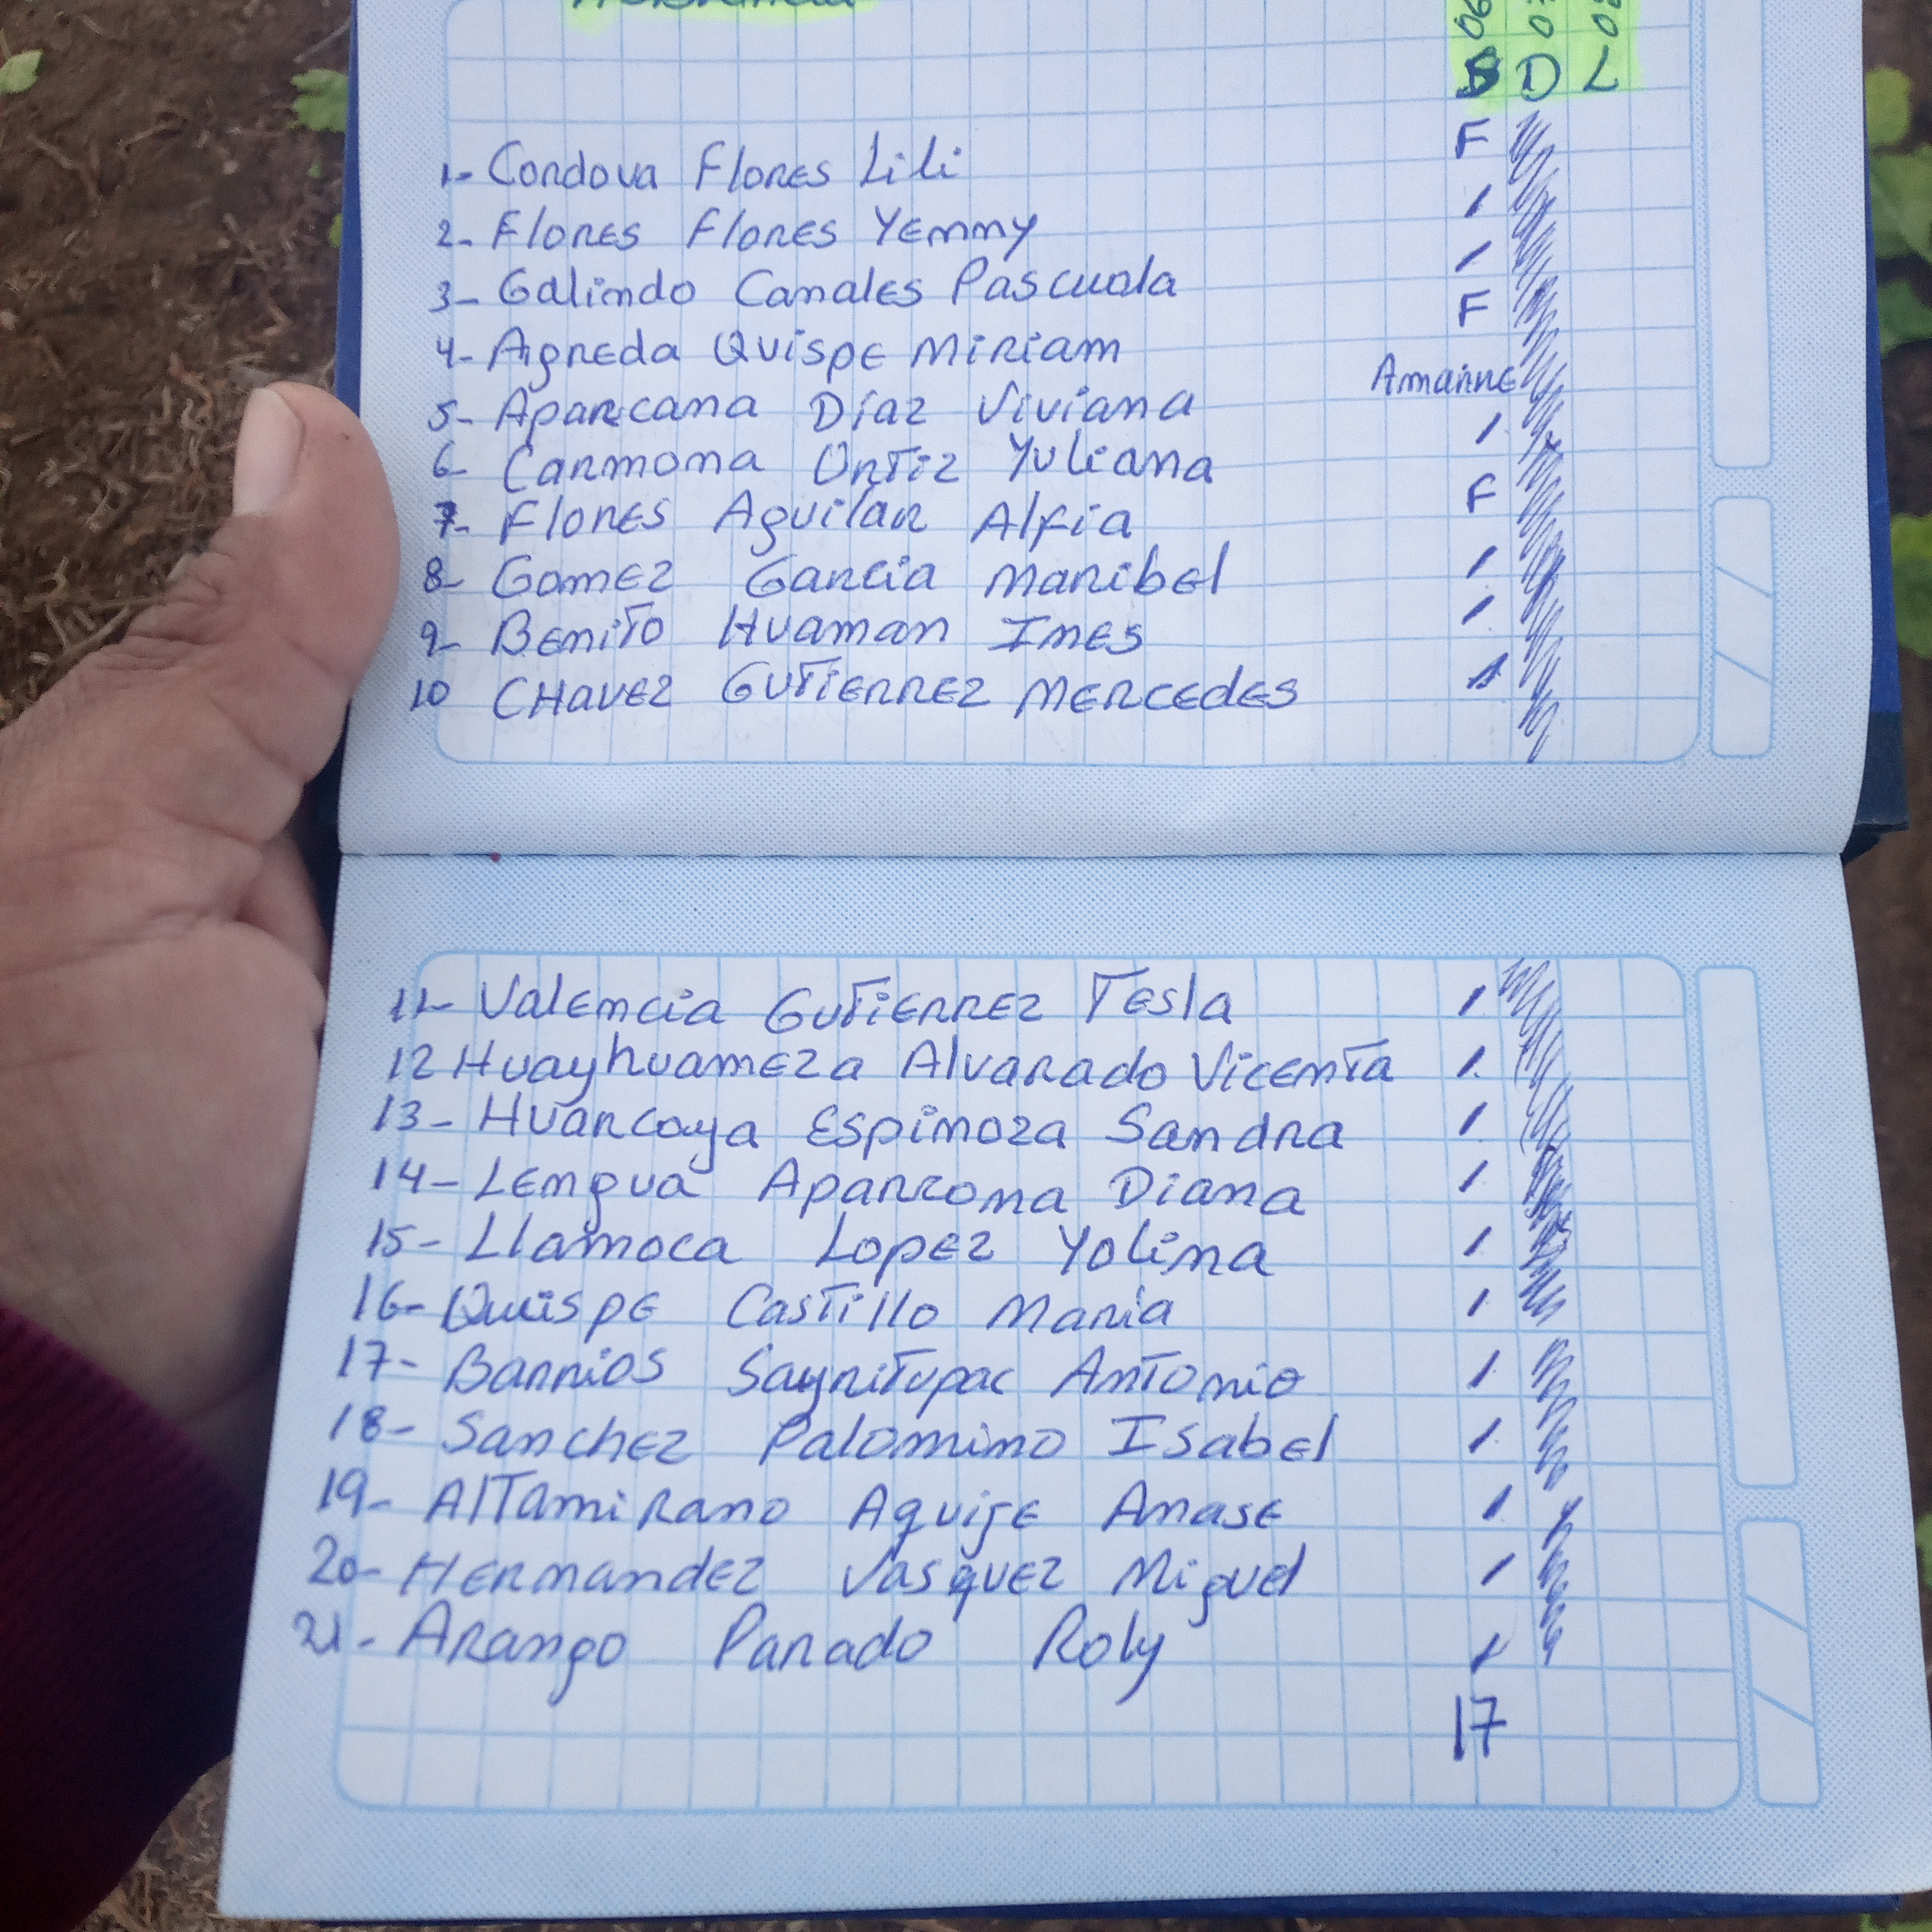 06 07 08
S D L
1- Cordova Flores Lili F
2- Flores Flores Yenny /
3- Galindo Canales Pascuala /
4- Agreda Quispe Miriam F
5- Aparcana Díaz Viviana Amarre
6- Carmona Ortiz Yuliana /
7- Flores Aguilar Alfia F
8- Gomez Garcia Maribel /
9- Benito Huaman Ines /
10 Chavez Gutierrez Mercedes /
11- Valencia Gutierrez Tesla /
12 Huayhuameza Alvarado Vicenta /
13- Huarcaya Espinoza Sandra /
14- Lengua Aparcona Diana /
15- Llamoca Lopez Yolina /
16- Quispe Castillo Maria /
17- Barrios Sayritupac Antonio /
18- Sanchez Palomino Isabel /
19- Altamirano Aquije Anase /
20- Hernandez Vasquez Miguel /
21- Arango Parado Roly /
17